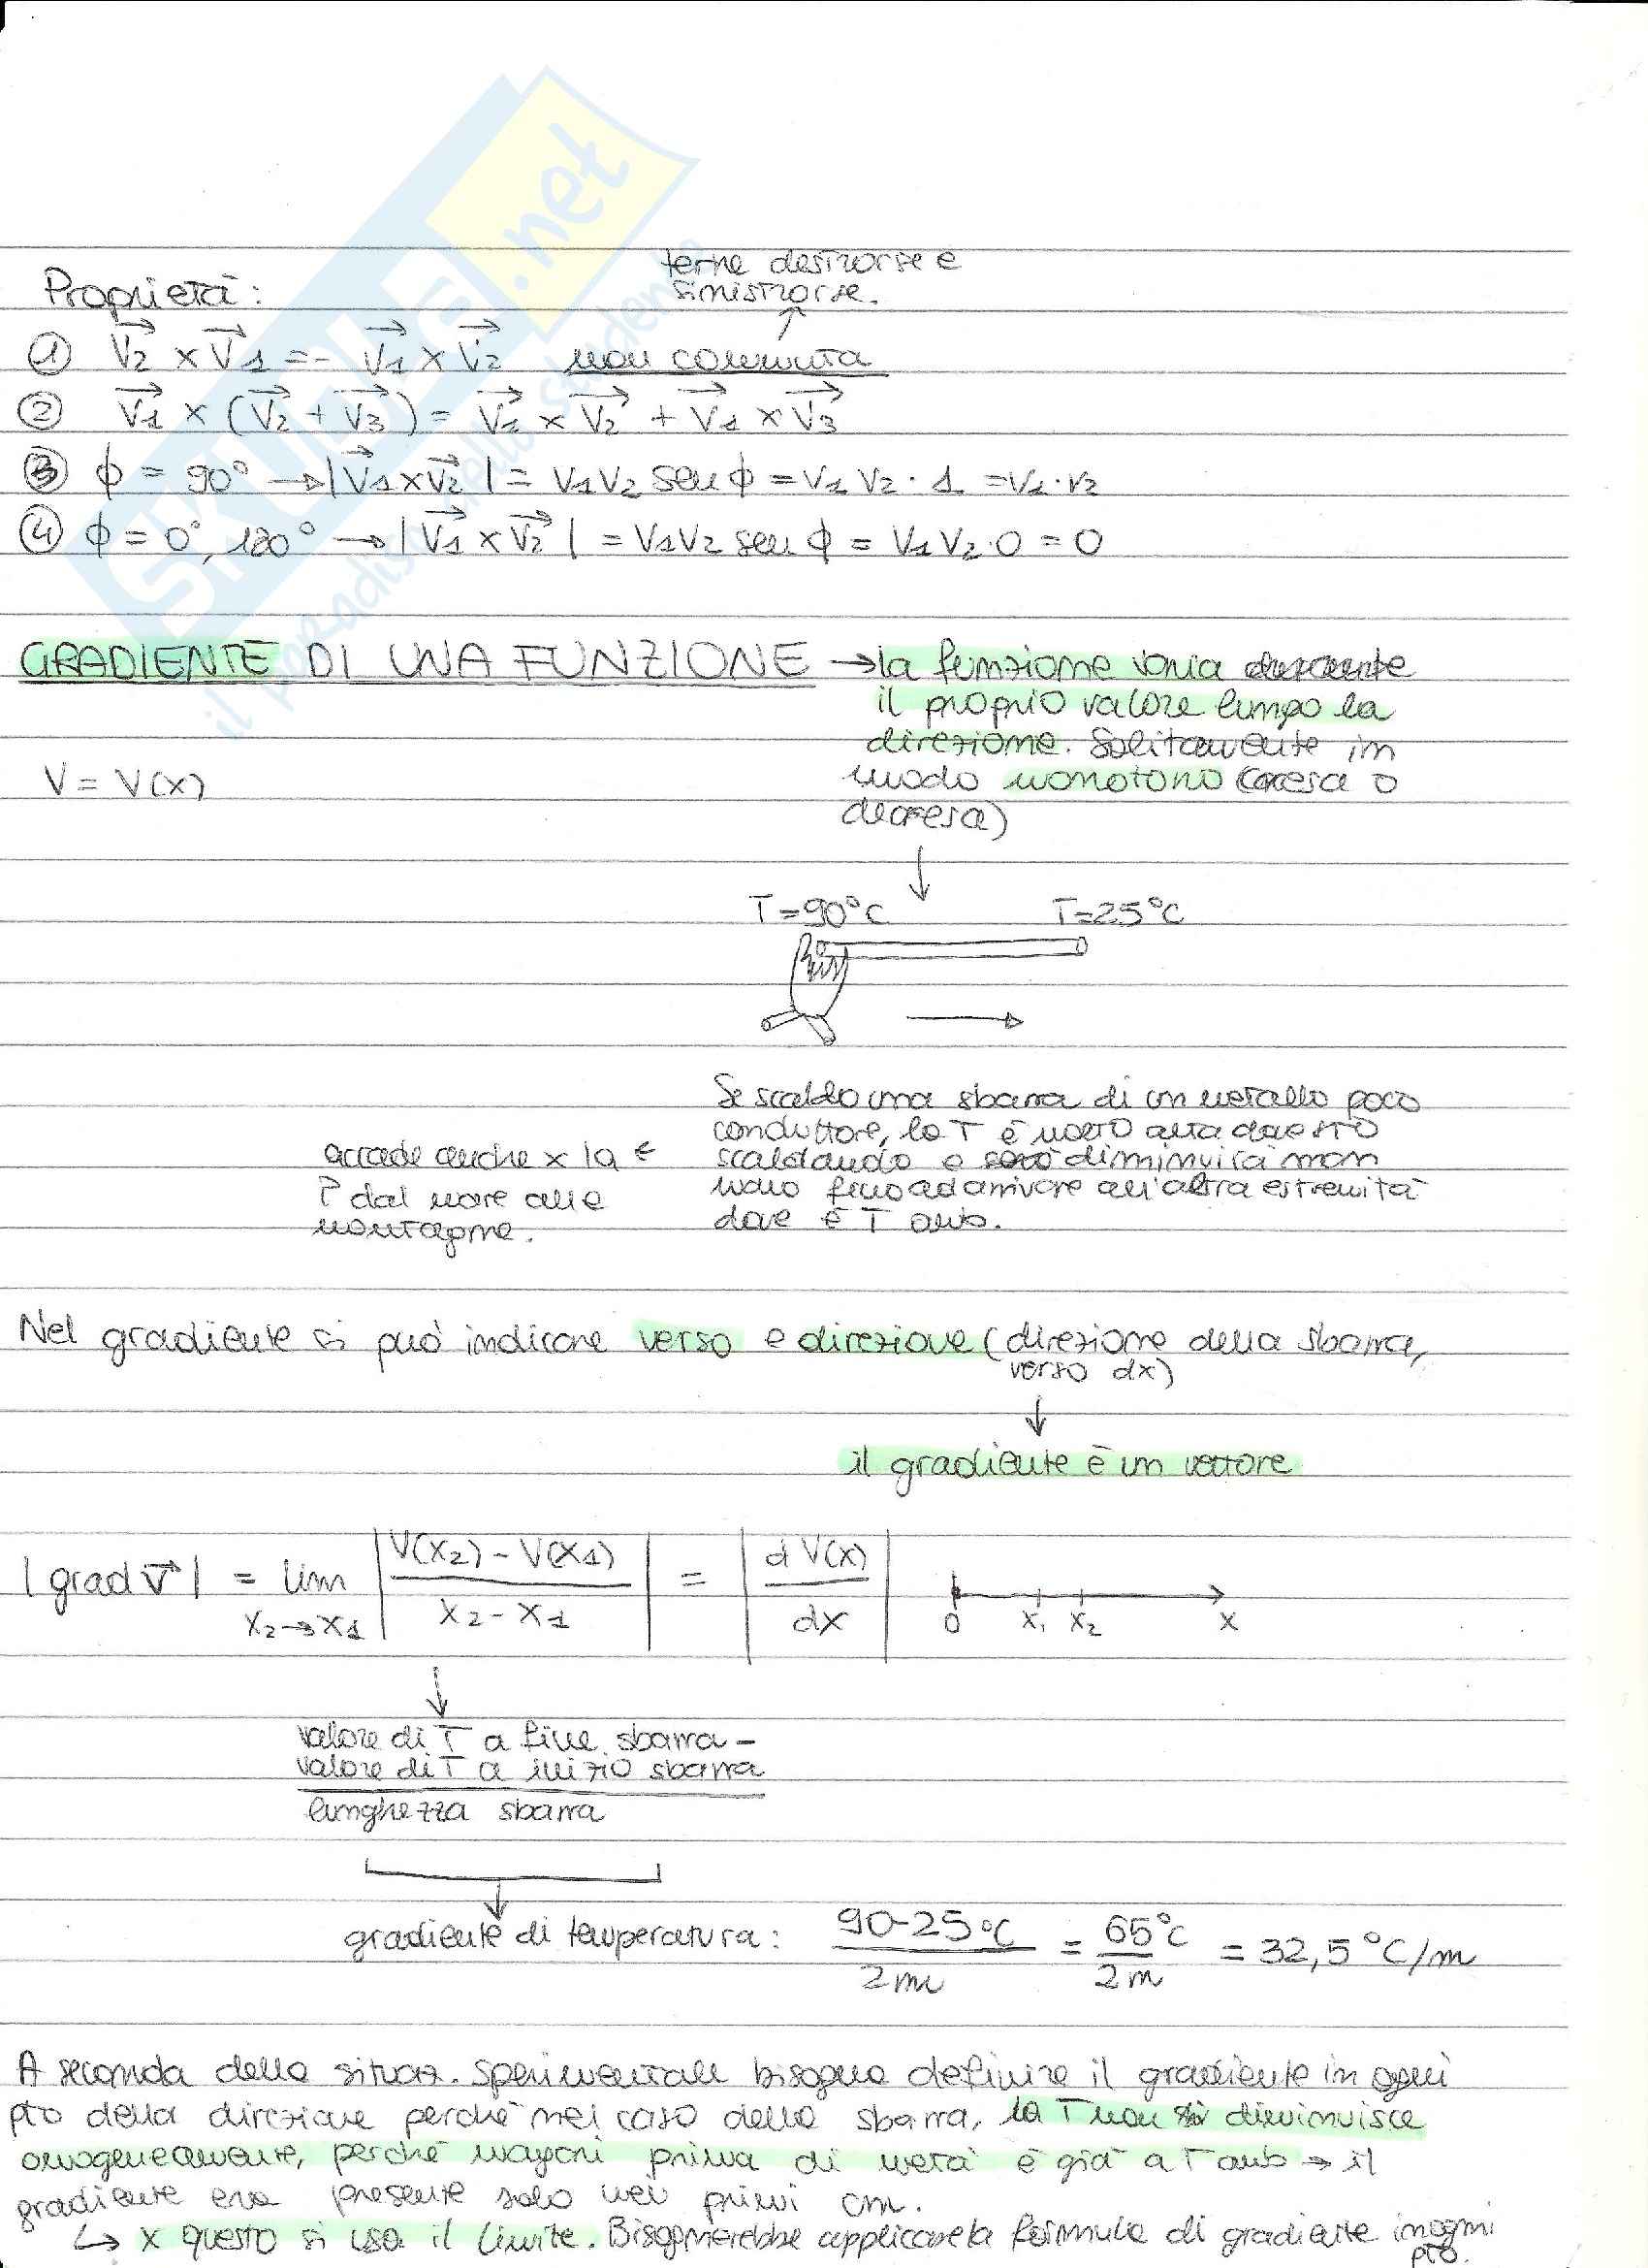 SKUOLA.net
il paradiso dello studente
terne destrorse e
sinistrorse.
Proprietà:
① V₂ × V₁ = - V₁ × V₂ non commuta
② V₁ × (V₂ + V₃) = V₁ × V₂ + V₁ × V₃
③ ϕ = 90° → |V₁ × V₂| = V₁V₂ sen ϕ = V₁V₂ · 1 = V₁ · V₂
④ ϕ = 0°, 180° → |V₁ × V₂| = V₁V₂ sen ϕ = V₁V₂ · 0 = 0
GRADIENTE DI UNA FUNZIONE → la funzione varia
il proprio valore lungo la
direzione. Solitamente in
modo monotono (cresa o
decresa)
V = V(x)
T=90°C T=25°C
Se scaldo una sbarra di un metallo poco
conduttore, la T è molto alta dae sto
scaldando e diminuirà man
mano fino ad arrivare all'altra estremità
dove è T amb.
accade anche x la ←
P dal mare alle
montagne.
Nel gradiente si può indicare verso e direzione (direzione della sbarra,
verso dx)
il gradiente è un vettore
|grad V| = lim x₂→x₁ |V(x₂) - V(x₁) / x₂ - x₁| = |d V(x) / dx|
0 x₁ x₂ x
valore di T a fine sbarra -
valore di T a inizio sbarra
lunghezza sbarra
gradiente di temperatura: 90-25°C / 2m = 65°C / 2m = 32,5 °C/m
A seconda della situaz. sperimentale bisogna definire il gradiente in ogni
pto della direzione perché nel caso della sbarra, la T non diminuisce
omogeneamente, perché magari prima di metà è già a T amb → il
gradiente era presente solo nei primi cm.
↳ x questo si usa il limite. Bisognerebbe applicare la formula di gradiente in ogni
pto.